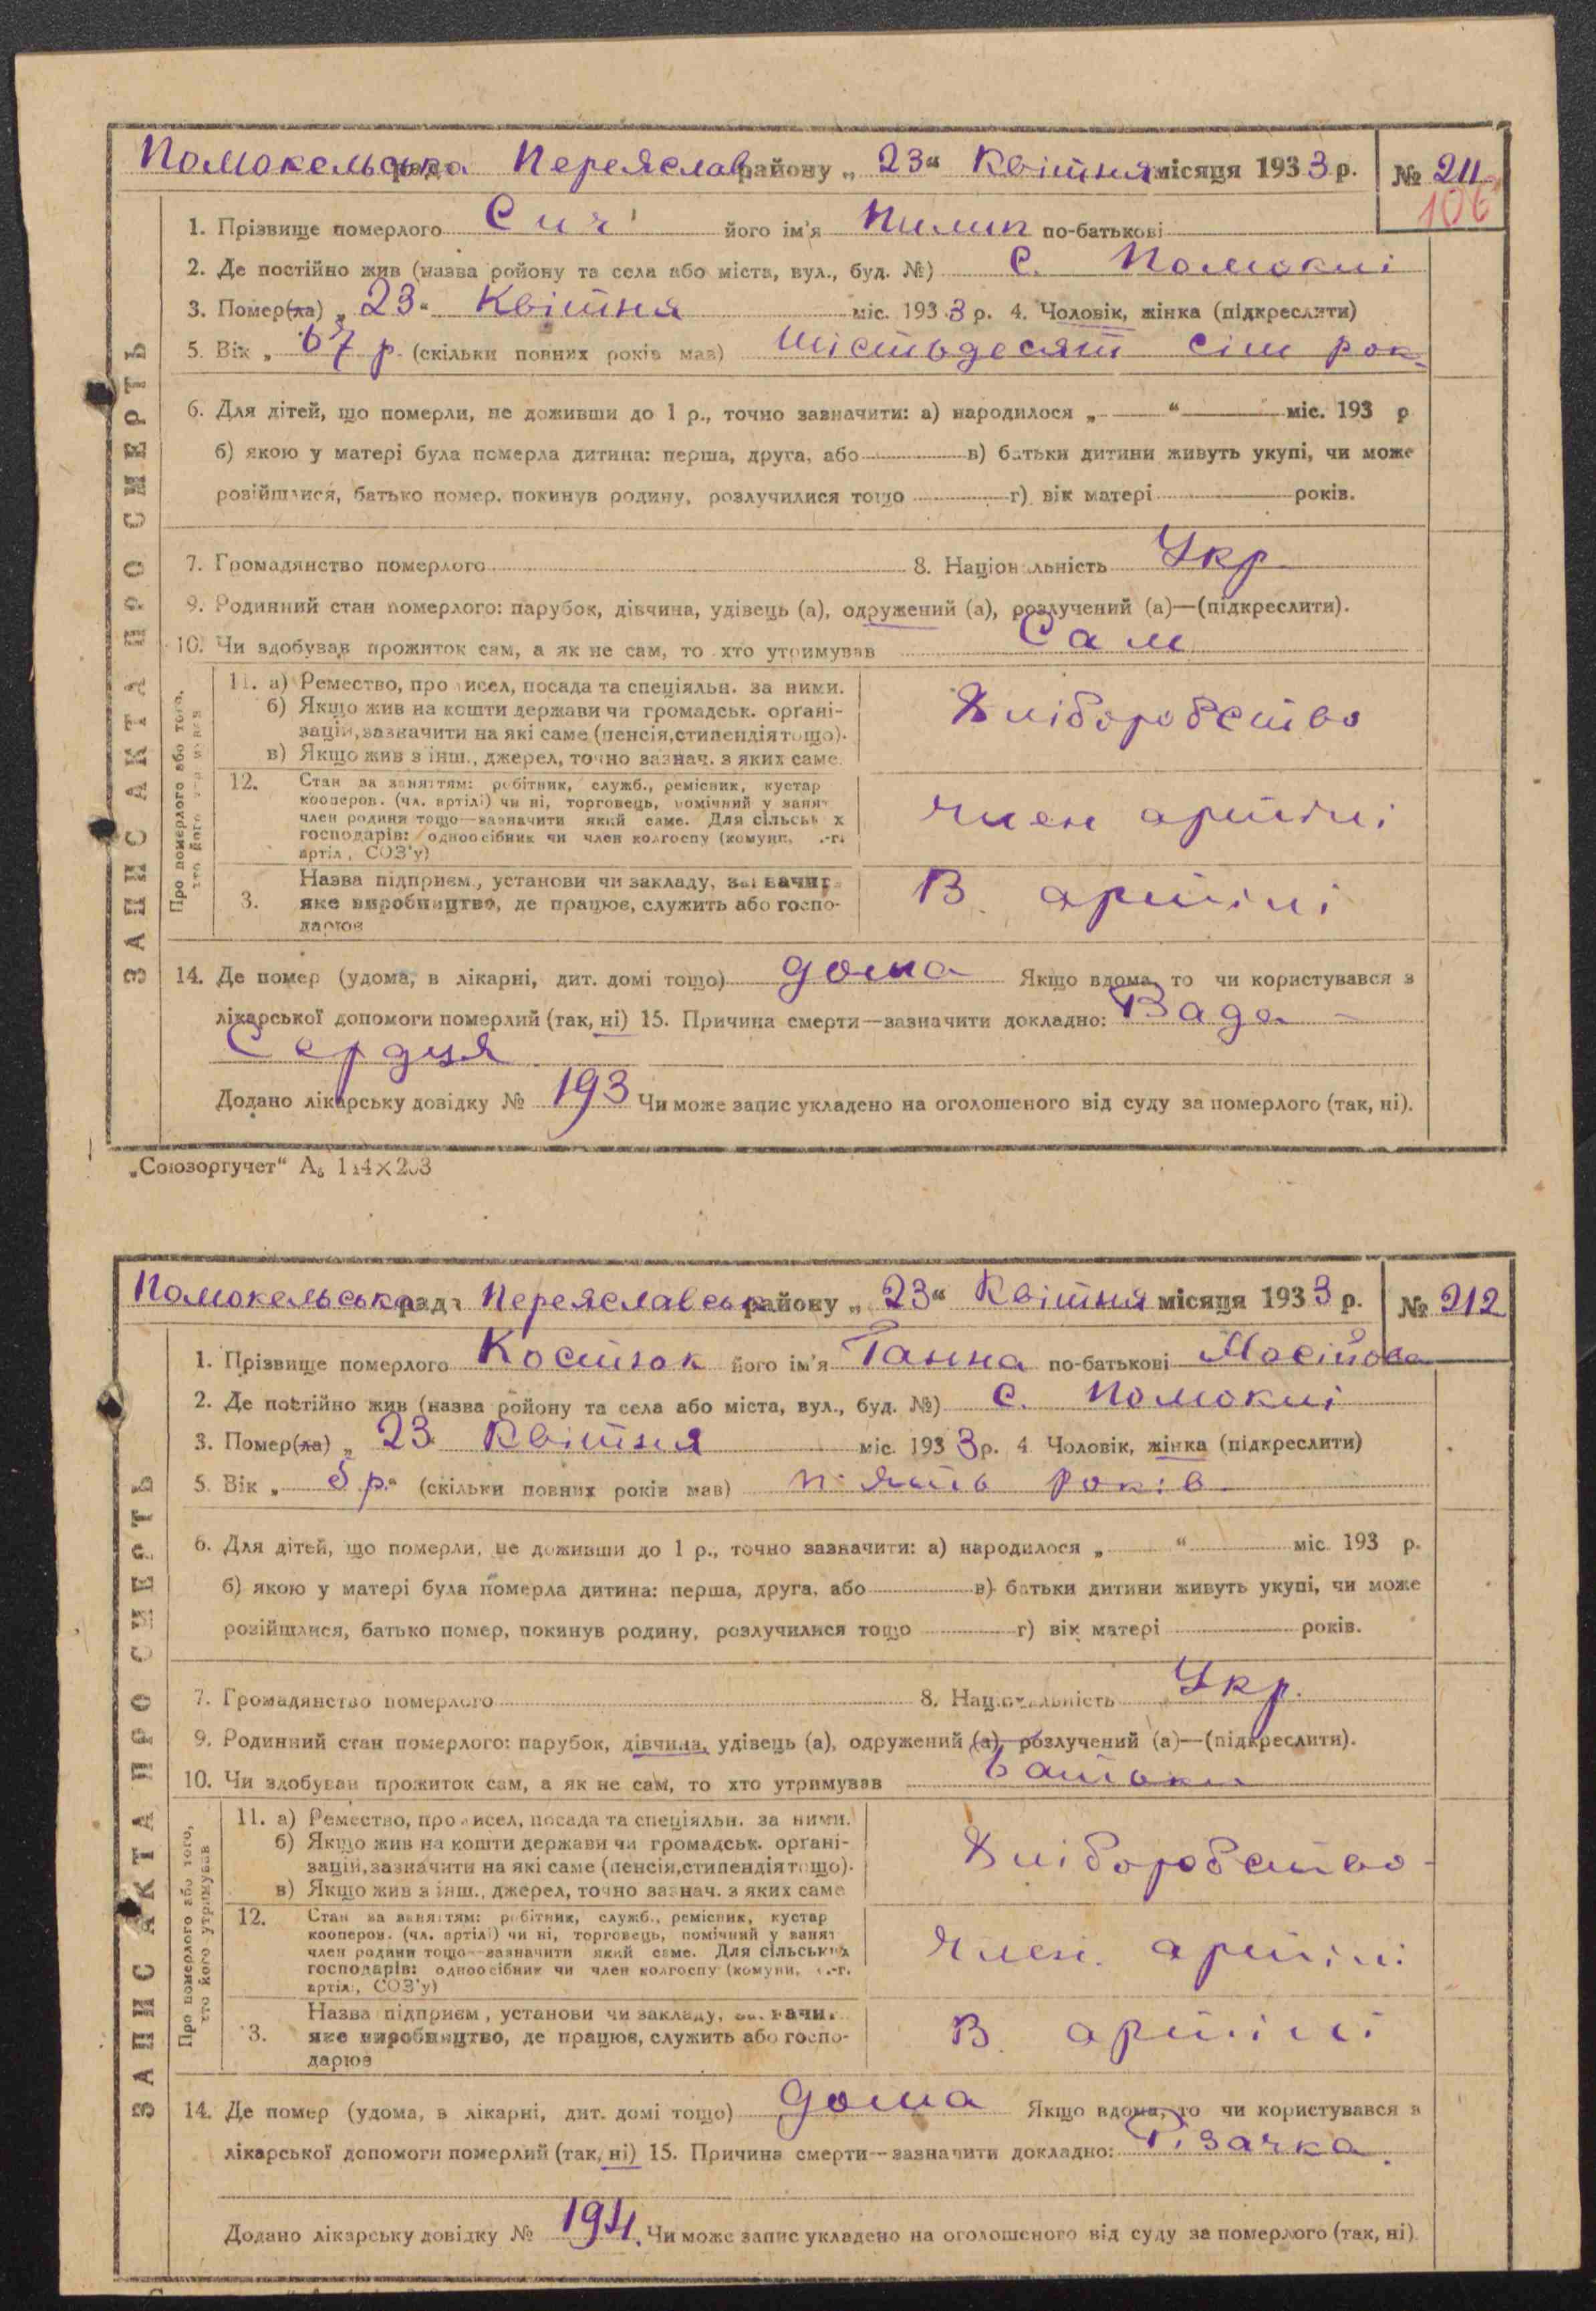 Помокельська рада Переяслав району „ 23 “ Квітня місяця 1933 р. № 211
106
1. Прізвище померлого Сич його ім'я Пилип по-батькові
2. Де постійно жив (назва ройону та села або міста, вул., буд. №) С. Помоклі
3. Помер(ла) „ 23 “ Квітня міс. 1933 р. 4. Чоловік, жінка (підкреслити)
5. Вік „ 67 р. (скільки повних років мав) Шістьдесят сім рок
6. Для дітей, що померли, не доживши до 1 р., точно зазначити: а) народилося „ “ міс. 193 р
б) якою у матері була померла дитина: перша, друга, або в) батьки дитини живуть укупі, чи може
розійшлися, батько помер, покинув родину, розлучилися тощо г) вік матері років.
7. Громадянство померлого 8. Національність Укр
9. Родинний стан померлого: парубок, дівчина, удівець (а), одружений (а), розлучений (а)—(підкреслити).
10. Чи здобував прожиток сам, а як не сам, то хто утримував Сам
ЗАПИС АКТА ПРО СМЕРТЬ
Про померлого або того, хто його утримував
11. а) Ремество, промисел, посада та спеціяльн. за ними.
б) Якщо жив на кошти держави чи громадськ. органі-
зацій, зазначити на які саме (пенсія, стипендія тощо).
в) Якщо жив з інш., джерел, точно зазнач. з яких саме
Хліборобство
12. Стан за заняттям: робітник, служб., ремісник, кустар
кооперов. (чл. артілі) чи ні, торговець, помічний у занят
член родини тощо—зазначити який саме. Для сільських
господарів: одноосібник чи член колгоспу (комуни, с.-г.
артіл., СОЗ'у)
член артілі
3. Назва підприєм., установи чи закладу, зазначит
яке виробництво, де працює, служить або госпо-
дарює
В артілі
14. Де помер (удома, в лікарні, дит. домі тощо) дома Якщо вдома, то чи користувався з
лікарської допомоги померлий (так, ні) 15. Причина смерти—зазначити докладно: Вада
Сердця
Додано лікарську довідку № 193 Чи може запис укладено на оголошеного від суду за померлого (так, ні).
„Союзоргучет“ А₅
Помокельська рада Переяславськ району „ 23 “ Квітня місяця 1933 р. № 212
1. Прізвище померлого Костюк його ім'я Ганна по-батькові Мосійова
2. Де постійно жив (назва ройону та села або міста, вул., буд. №) С. Помоклі
3. Помер(ла) „ 23 “ Квітня міс. 1933 р. 4 Чоловік, жінка (підкреслити)
5. Вік „ 5 р. “ (скільки повних років мав) п'ять років
6. Для дітей, що померли, не доживши до 1 р., точно зазначити: а) народилося „ “ міс. 193 р.
б) якою у матері була померла дитина: перша, друга, або в) батьки дитини живуть укупі, чи може
розійшлися, батько помер, покинув родину, розлучилися тощо г) вік матері років.
7. Громадянство померлого 8. Національність Укр.
9. Родинний стан померлого: парубок, дівчина, удівець (а), одружений (а), розлучений (а)—(підкреслити).
10. Чи здобував прожиток сам, а як не сам, то хто утримував батьки
ЗАПИС АКТА ПРО СМЕРТЬ
Про померлого або того, хто його утримував
11. а) Ремество, промисел, посада та спеціяльн. за ними.
б) Якщо жив на кошти держави чи громадськ. органі-
зацій, зазначити на які саме (пенсія, стипендія тощо).
в) Якщо жив з інш., джерел, точно зазнач. з яких саме
Хліборобство
12. Стан за заняттям: робітник, служб., ремісник, кустар
кооперов. (чл. артілі) чи ні, торговець, помічний у занят
член родини тощо—зазначити який саме. Для сільських
господарів: одноосібник чи член колгоспу (комуни, с.-г.
артіл., СОЗ'у)
член артілі
3. Назва підприєм., установи чи закладу, зазначи
яке виробництво, де працює, служить або госпо-
дарює
В артілі
14. Де помер (удома, в лікарні, дит. домі тощо) дома Якщо вдома, то чи користувався з
лікарської допомоги померлий (так, ні) 15. Причина смерти—зазначити докладно: Різачка
Додано лікарську довідку № 194 Чи може запис укладено на оголошеного від суду за померлого (так, ні)